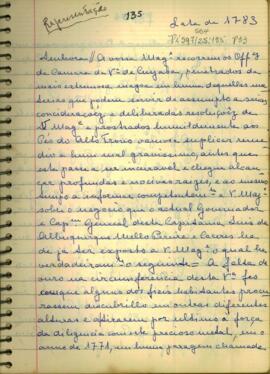 Representação
135
Data de 1783
504
Senhora // A vossa Magª recorrem os Offª
da Camera da Vª do Cuyabá, penetrados da
mais extremosa magoa em huma daquellas ma
terias que podem servir de assumpto a serias
consideraçoens e deliberadas resoluçois de
V Magª e prostrados humildemente aos
Pés do Alto Trono vamos suplicar reme
dio a hum mal gravissimo, antes que
este passe a ser incuravel e chegue a lcan
çar profundas e nocivas raizes, e ao mesmo
tempo a informar completamente a V. Magª
sobre o negocio que o actual Governador
e Capᵐ General desta Capitania Luis de
Albuquerque Mello Pereira e Caceres ha
de já ter exposto a V. Magª o qual he
verdadeiramᵉ o seguinte = A falta de
ouro na circumferencia desta Vª fes
com que alguns dos fieis habitantes procu
rassem descubrillo em outras diferentes
alturas e afirarem por ultimo à força
da diligencia com este precioso metal, em o
anno de 1771, em huma paragem chamada